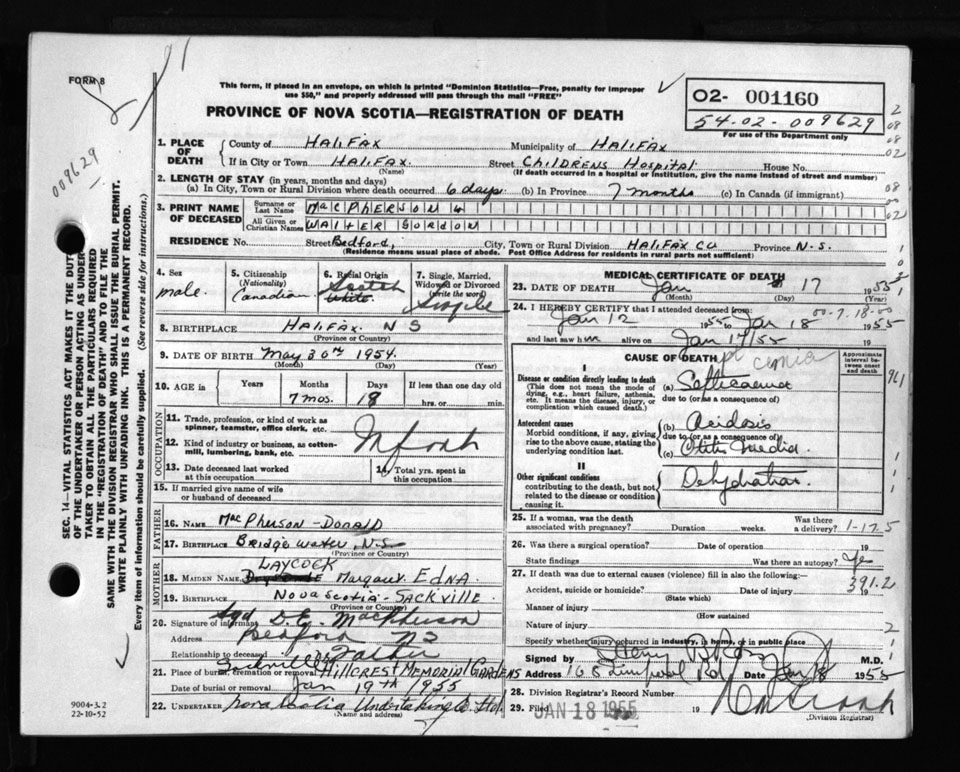 91
FORM 8
009629
This form, if placed in an envelope, on which is printed "Dominion Statistics—Free, penalty for improper
use $50," and properly addressed will pass through the mail "FREE"
PROVINCE OF NOVA SCOTIA—REGISTRATION OF DEATH
O2- 001160
54-02-009629
For use of the Department only
1. PLACE OF DEATH
County of HaliFax Municipality of HaliFax
If in City or Town HaliFax. Street Childrens Hospital House No.
(Name) (If death occurred in a hospital or institution, give the name instead of street and number)
2. LENGTH OF STAY (in years, months and days)
(a) In City, Town or Rural Division where death occurred 6 days (b) In Province 7 months (c) In Canada (if immigrant)
3. PRINT NAME OF DECEASED
Surname or Last Name MacPHERSON
All Given or Christian Names WALTER GORDON
RESIDENCE No. Street Bedford, City, Town or Rural Division HALIFAX CO Province N.S.
(Residence means usual place of abode. Post Office Address for residents in rural parts not sufficient)
4. Sex
male.
5. Citizenship
(Nationality)
Canadian
6. Racial Origin
Scotch
White
7. Single, Married,
Widowed or Divorced
(write the word)
Single
8. BIRTHPLACE HaliFax N S
(Province or Country)
9. DATE OF BIRTH May 30th 1954.
(Month) (Day) (Year)
10. AGE in Years Months Days If less than one day old
7 mos. 18 hrs. or min.
OCCUPATION
11. Trade, profession, or kind of work as
spinner, teamster, office clerk, etc.
12. Kind of industry or business, as cotton-
mill, lumbering, bank, etc.
Infant
13. Date deceased last worked
at this occupation
14. Total yrs. spent in
this occupation
15. If married give name of wife
or husband of deceased
FATHER
16. NAME MacPherson-Donald
17. BIRTHPLACE Bridgewater, N.S
(Province or Country)
MOTHER
LAYCOCK
18. MAIDEN NAME Margaret EDNA.
19. BIRTHPLACE NOVA SCOTIA - SACKVILLE.
(Province or Country)
20. Signature of informant Sgd D. E. MacPherson
Address Bedford NS
Relationship to deceased Father
Sackville
21. Place of burial, cremation or removal HILLCREST MEMORIAL GARDENS
Date of burial or removal Jan 19th 1955
22. UNDERTAKER Nova Scotia Undertaking Co. Ltd.
(Name and address)
MEDICAL CERTIFICATE OF DEATH
23. DATE OF DEATH Jan 17 1955
(Month) (Day) (Year)
24. I HEREBY CERTIFY that I attended deceased from:
00-7.18-00
Jan 12 1955 to Jan 18 1955
and last saw him alive on Jan 17/55
CAUSE OF DEATH
Approximate interval between onset and death
I
Disease or condition directly leading to death
(This does not mean the mode of
dying, e.g., heart failure, asthenia,
etc. It means the disease, injury, or
complication which caused death.)
(a) Septicaemia
due to (or as a consequence of)
Antecedent causes
Morbid conditions, if any, giving
rise to the above cause, stating the
underlying condition last.
(b) Acidosis
due to (or as a consequence of)
(c) Otitis Media
II
Other significant conditions
contributing to the death, but not
related to the disease or condition
causing it.
Dehydration.
25. If a woman, was the death
associated with pregnancy? Duration weeks. Was there a delivery?
1-17.5
26. Was there a surgical operation? Date of operation 19
State findings Was there an autopsy? Yes
27. If death was due to external causes (violence) fill in also the following:—
391.2
Accident, suicide or homicide? Date of injury 19
(State which)
Manner of injury
(How sustained
Nature of injury
Specify whether injury occurred in industry, in home, or in public place
Signed by Henry B Ross M.D.
Address Date Jan 18 1955
28. Division Registrar's Record Number
29. Filed JAN 18 1955 19
(Division Registrar)
SEC. 14—VITAL STATISTICS ACT MAKES IT THE DUTY
OF THE UNDERTAKER OR PERSON ACTING AS UNDER-
TAKER TO OBTAIN ALL THE PARTICULARS REQUIRED
IN THE "REGISTRATION OF DEATH" AND TO FILE THE
SAME WITH THE DIVISION REGISTRAR WHO SHALL ISSUE THE BURIAL PERMIT.
WRITE PLAINLY WITH UNFADING INK. THIS IS A PERMANENT RECORD.
Every item of information should be carefully supplied. (See reverse side for instructions.)
9004-3.2
22-10-52